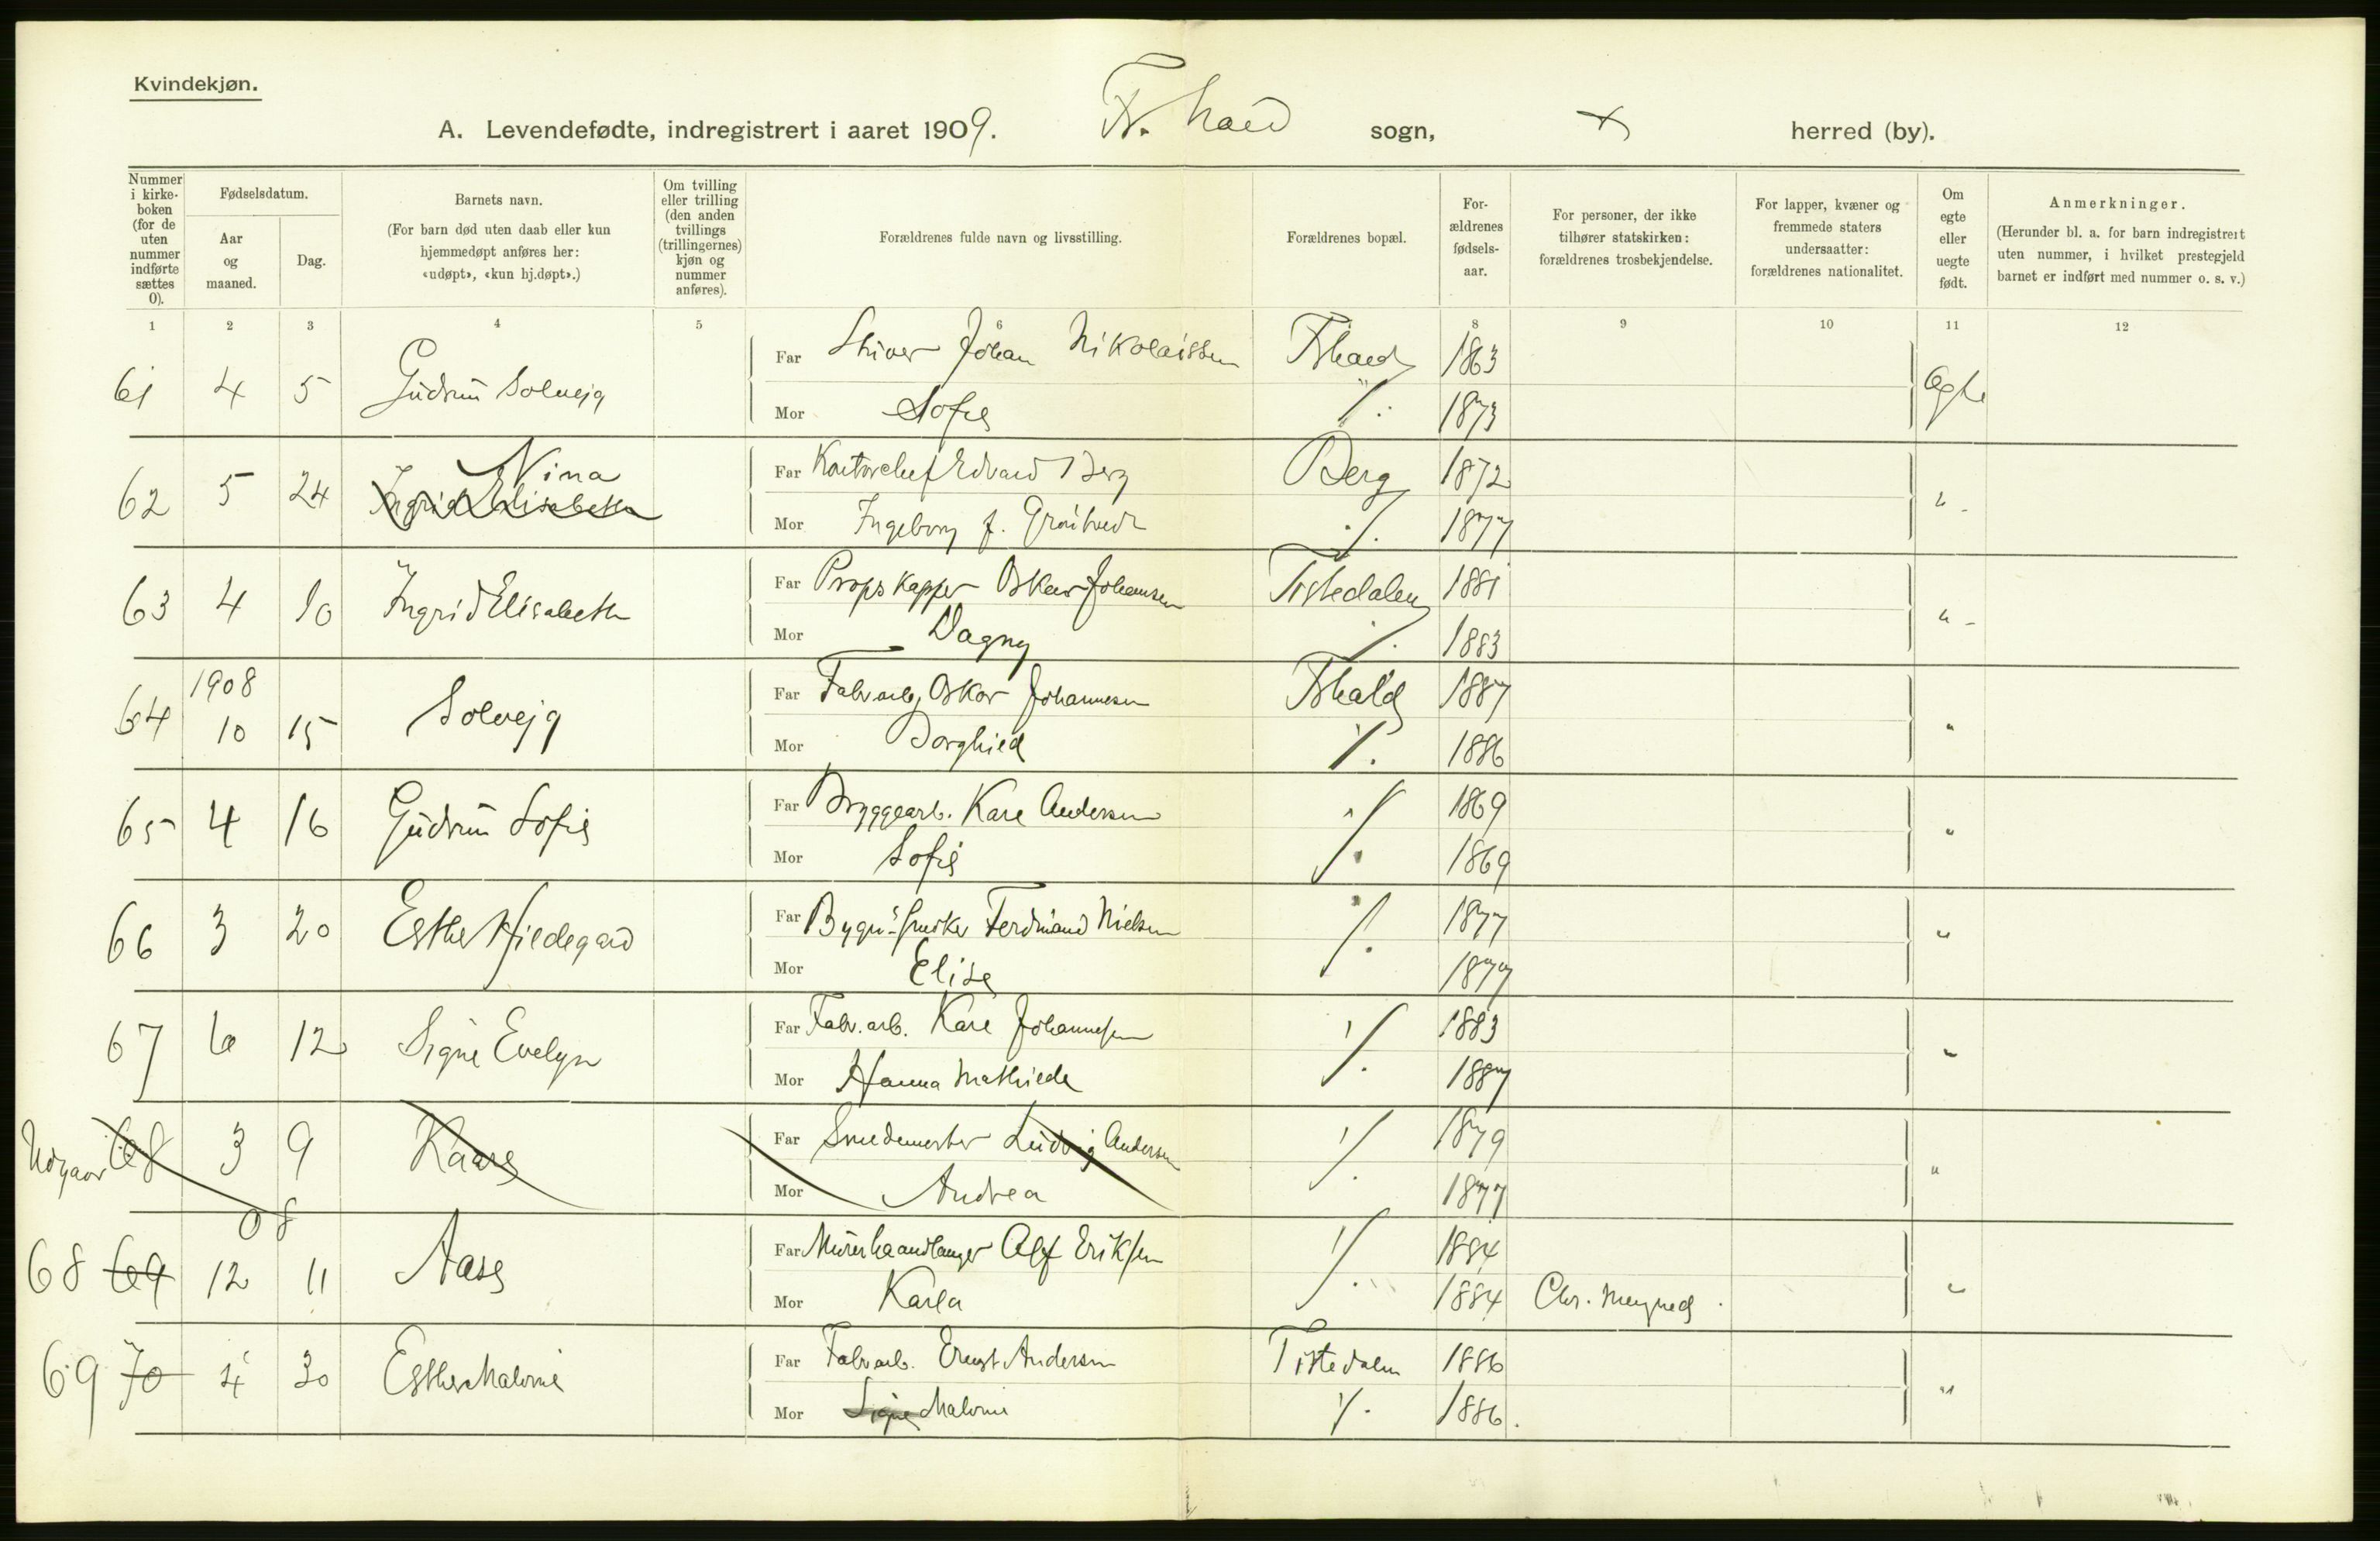 Kvindekjøn.
A. Levendefødte, indregistrert i aaret 1909. Fr.hald sogn, herred (by).
Nummer i kirkeboken (for de uten nummer indførte sættes 0).
Fødselsdatum.
Aar og maaned.
Dag.
Barnets navn.
(For barn død uten daab eller kun hjemmedøpt anføres her: «udøpt», «kun hj.døpt».)
Om tvilling eller trilling (den anden tvillings (trillingernes) kjøn og nummer anføres).
Forældrenes fulde navn og livsstilling.
Forældrenes bopæl.
Forældrenes fødselsaar.
For personer, der ikke tilhører statskirken: forældrenes trosbekjendelse.
For lapper, kvæner og fremmede staters undersaatter: forældrenes nationalitet.
Om egte eller uegte født.
Anmerkninger.
(Herunder bl. a. for barn indregistrert uten nummer, i hvilket prestegjeld barnet er indført med nummer o. s. v.)
1 2 3 4 5 6 8 9 10 11 12
61 4 5 Gudrun Solveig Far Skriver Johan Nikolaissen Fr.hald 1863 Egte
Mor Sofie 1873
62 5 24 Nina Ingrid Elisabeth Far Kontorchef Edvard Berg Berg 1872 "
Mor Ingeborg f. Grøntvedt 1877
63 4 10 Ingrid Elisabeth Far Propskapper Oskar Johansen Tistedalen 1881 "
Mor Dagny 1883
64 1908 10 15 Solveig Far Fabr.arb. Oskar Johannesen Fr.hald 1887 "
Mor Borghild 1886
65 4 16 Gudrun Sofie Far Bryggearb. Karl Andersen 1869 "
Mor Sofie 1869
66 3 20 Esther Hildegard Far Bygn.snedker Ferdinand Nielsen 1877 "
Mor Elise 1877
67 6 12 Signe Evelyn Far Fabr.arb. Karl Johannesen 1883 "
Mor Hanna Mathilde 1887
Udgaar 68 3 9 Kaare Far Smedemester Ludvig Andersen 1879 "
Mor Andrea 1877
68 69 08 12 11 Aase Far Murerhaandlanger Alf Eriksen 1884 "
Mor Karla 1884 Chr. Menighed
69 70 4 30 Esther Malvine Far Fabr.arb. Ernst Andersen Tistedalen 1886 "
Mor Signe Malvine 1886